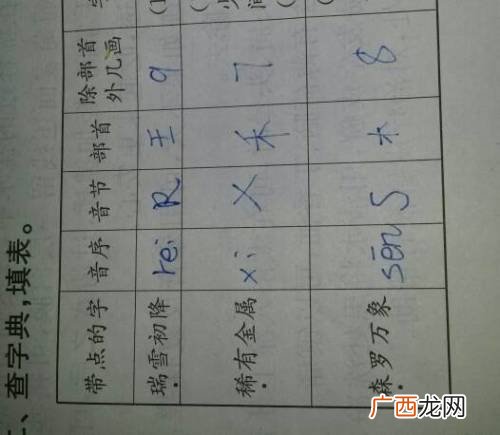 、查字典,填表。
带点的字 音序 音节 部首 除部首外几画
瑞雪初降 rei R 王 9
稀有金属 xi X 禾 7
森罗万象 sēn S 木 8
广西龙网